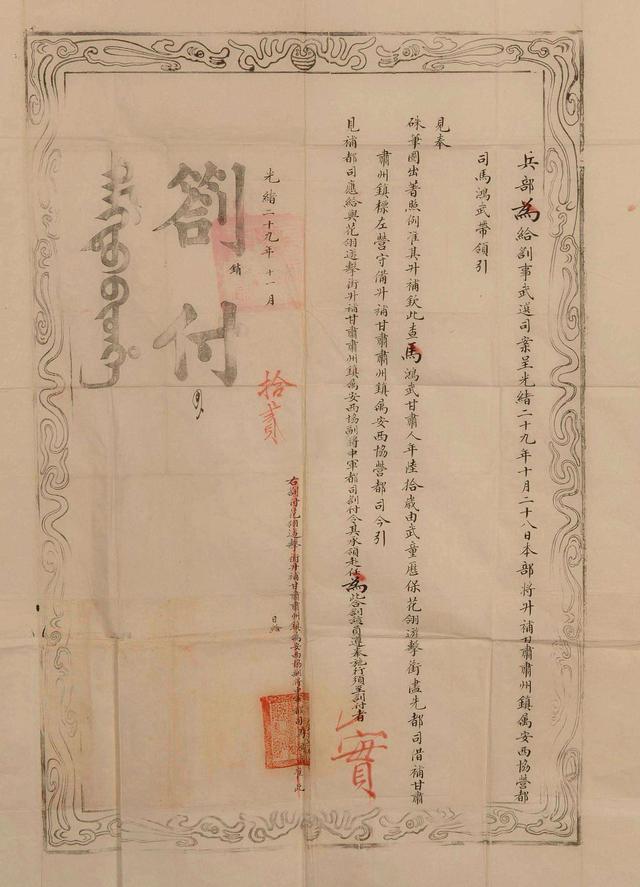 兵部為給劄事武選司案呈光緒二十九年十月二十八日本部將升補甘肅肅州鎮屬安西協營都
司馬鴻武帶領引
見奉
硃筆圈出著照例准其升補欽此查馬鴻武甘肅人年陸拾歲由武童歷保花翎遊擊銜儘先都司借補甘肅
肅州鎮標左營守備升補甘肅肅州鎮屬安西協營都司今引
見補都司應給與花翎遊擊銜升補甘肅肅州鎮屬安西協副將中軍都司劄付令其承領赴任為此合劄該員遵奉施行須至劄付者
實
右劄付花翎遊擊銜升補甘肅肅州鎮屬安西協副將中軍都司馬 准此
光緒二十九年十一月
日給
拾貳
劄付